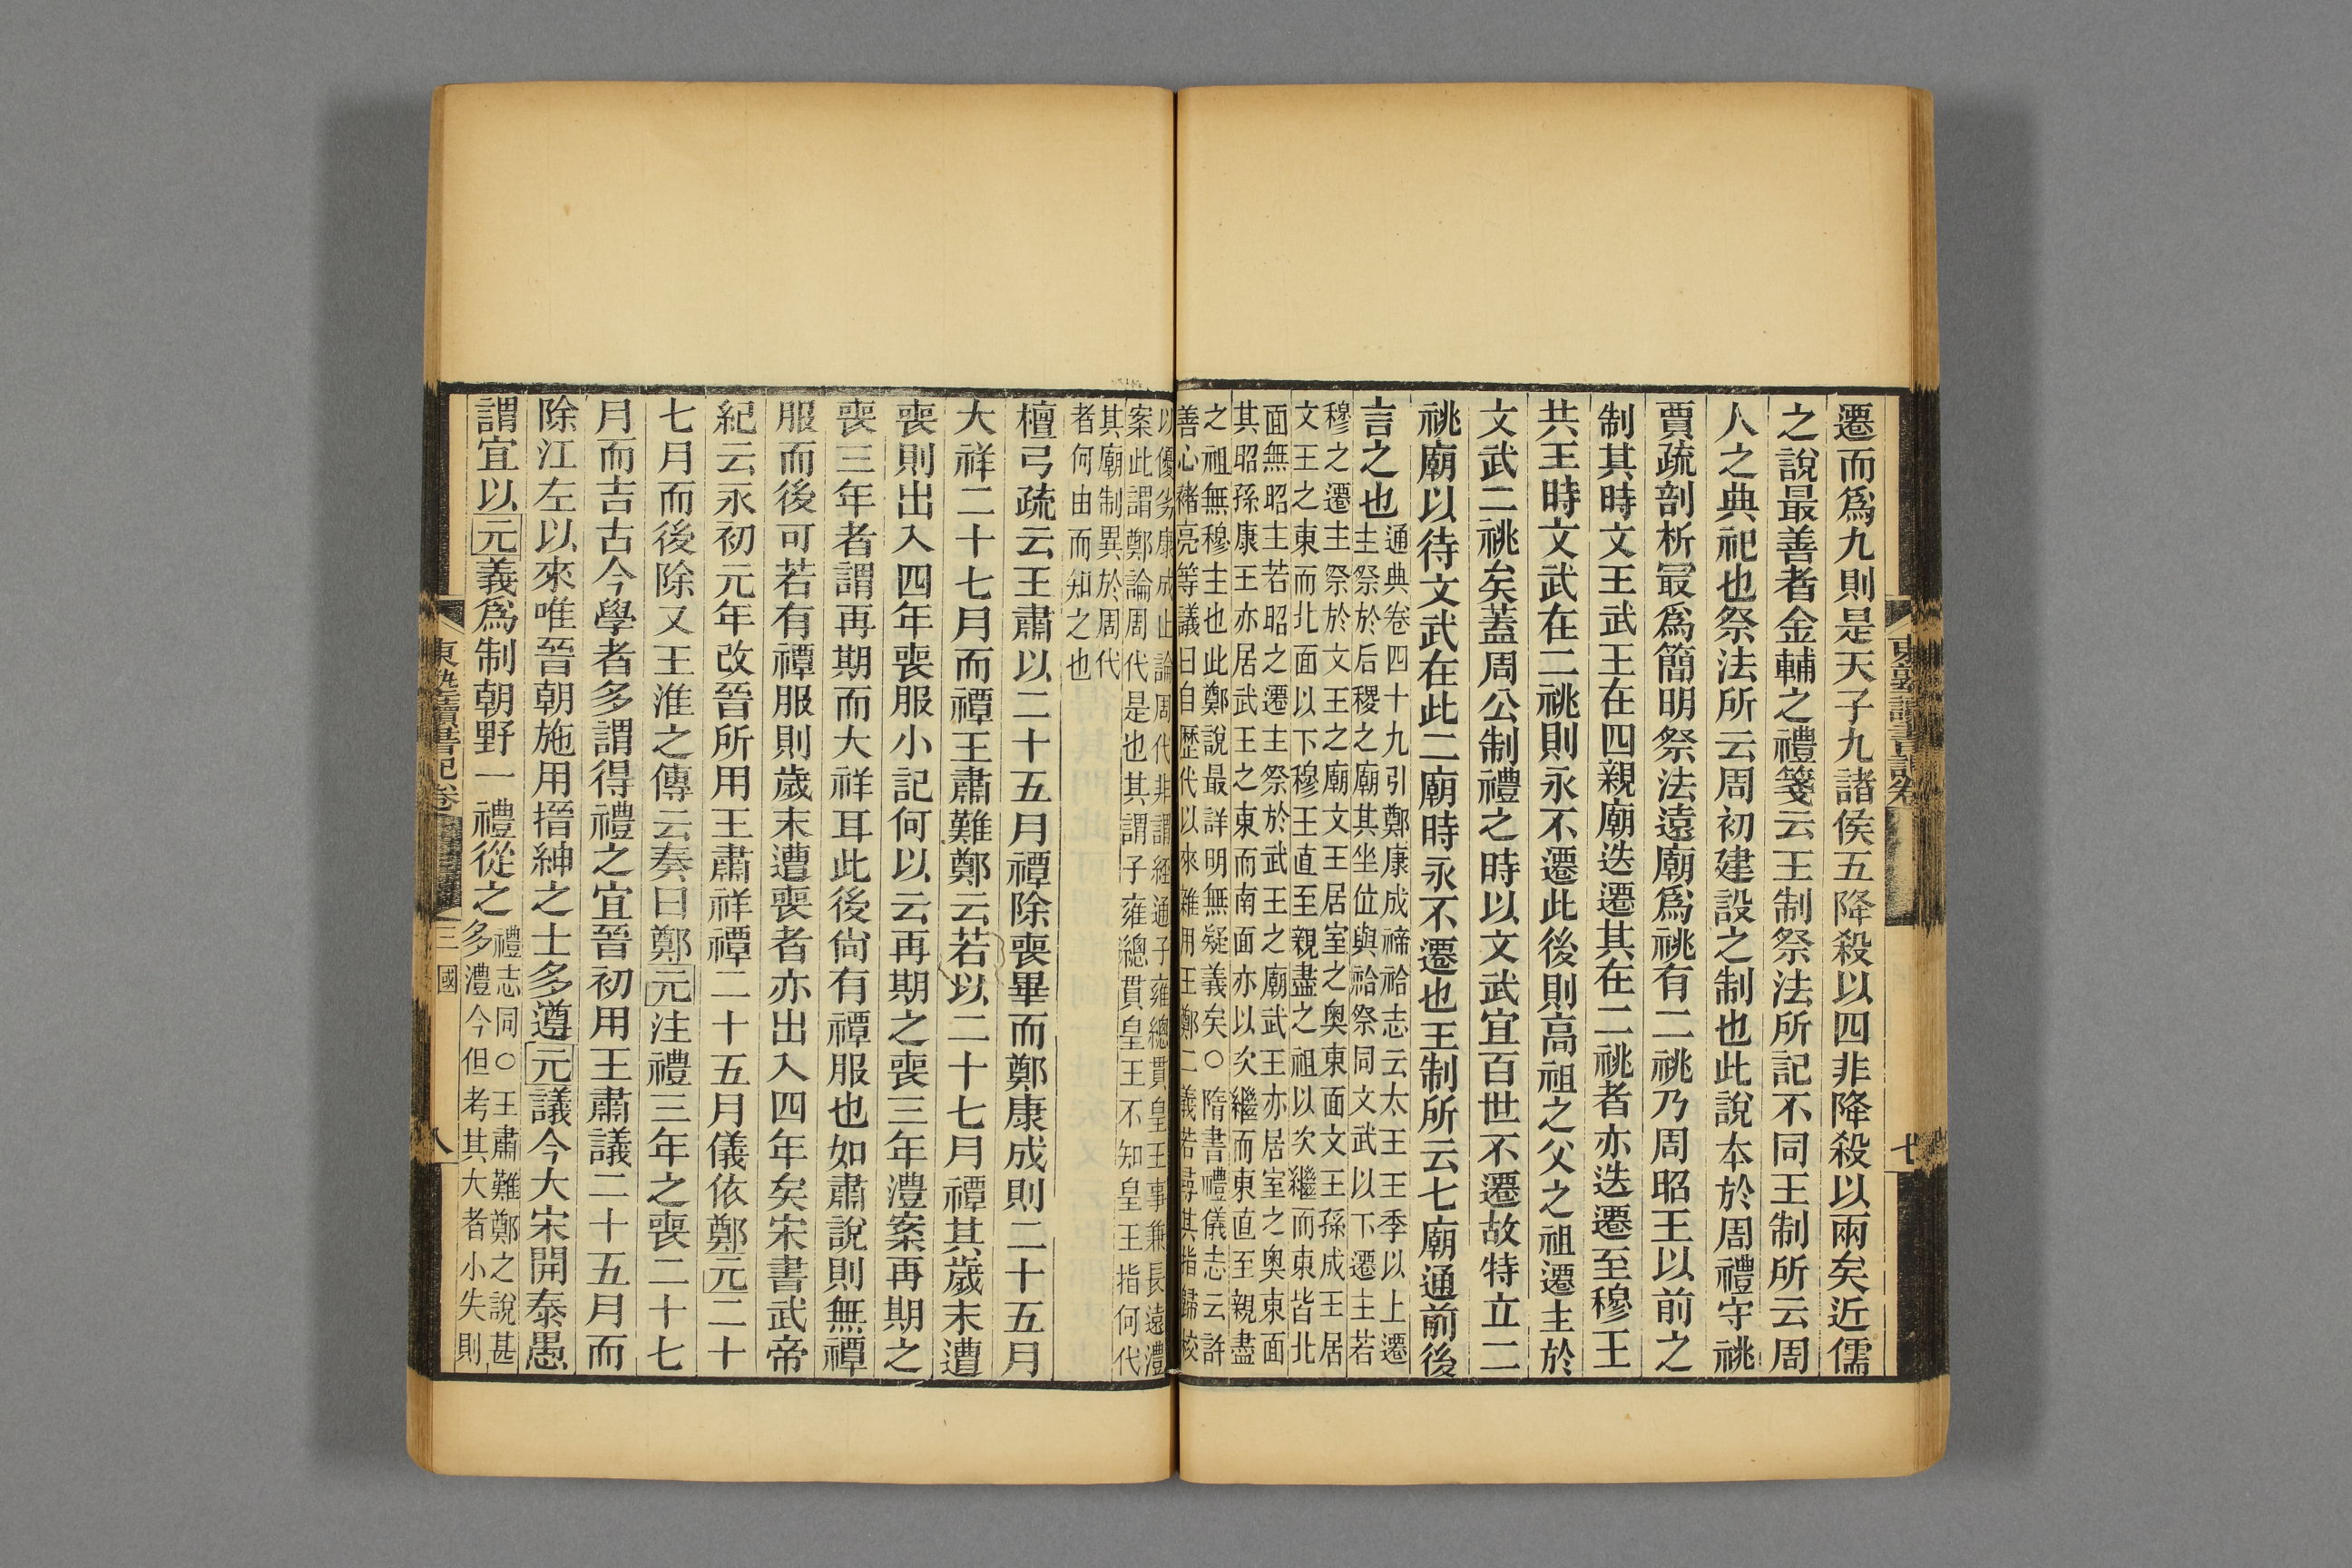 遷而爲九則是天子九諸侯五降殺以四非降殺以兩矣近儒
之說最善者金輔之禮箋云王制祭法所記不同王制所云周
人之典祀也祭法所云周初建設之制也此說本於周禮守祧
賈疏剖析最爲簡明祭法遠廟爲祧有二祧乃周昭王以前之
制其時文王武王在四親廟迭遷其在二祧者亦迭遷至穆王
共王時文武在二祧則永不遷此後則高祖之父之祖遷主於
文武二祧矣蓋周公制禮之時以文武宜百世不遷故特立二
祧廟以待文武在此二廟時永不遷也王制所云七廟通前後
言之也
通典卷四十九引鄭康成禘祫志云太王王季以上遷
主祭於后稷之廟其坐位與祫祭同文武以下遷主若
穆之遷主祭於文王之廟文王居室之奥東面文王孫成王居
文王之東而北面以下穆王直至親盡之祖以次繼而東皆北
面無昭主若昭之遷主祭於武王之廟武王亦居室之奥東面
其昭孫康王亦居武王之東而南面亦以次繼而東直至親盡
之祖無穆主也此鄭說最詳明無疑義矣○隋書禮儀志云許
善心褚亮等議曰自歷代以來雜用王鄭二義若尋其指歸校
以優劣康成止論周代非謂經通子雍總貫皇王事兼長遠澧
案此謂鄭論周代是也其謂子雍總貫皇王不知皇王指何代
其廟制異於周代
者何由而知之也
檀弓疏云王肅以二十五月禫除喪畢而鄭康成則二十五月
大祥二十七月而禫王肅難鄭云若以二十七月禫其歲末遭
喪則出入四年喪服小記何以云再期之喪三年澧案再期之
喪三年者謂再期而大祥耳此後尙有禫服也如肅說則無禫
服而後可若有禫服則歲末遭喪者亦出入四年矣宋書武帝
紀云永初元年改晉所用王肅祥禫二十五月儀依鄭元二十
七月而後除又王淮之傳云奏曰鄭元注禮三年之喪二十七
月而吉古今學者多謂得禮之宜晉初用王肅議二十五月而
除江左以來唯晉朝施用搢紳之士多遵元議今大宋開泰愚
謂宜以元義爲制朝野一禮從之
禮志同○王肅難鄭之說甚
多澧今但考其大者小失則
東塾讀書記卷
三國
八
東塾讀書記卷
七